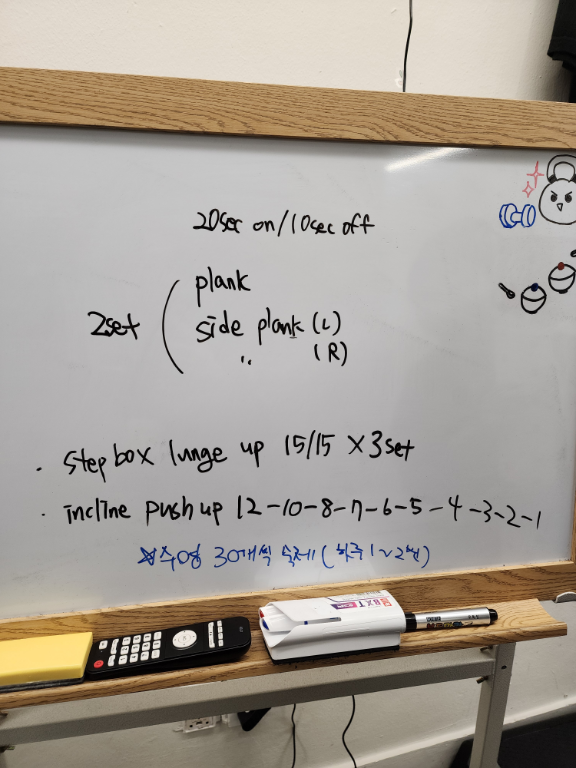 20sec on/10sec off
plank
2set ( side plank (L)
" (R)
· step box lunge up 15/15 X 3set
· incline push up 12-10-8-7-6-5-4-3-2-1
☆수영 30개씩 숙제 (하루 1~2번)